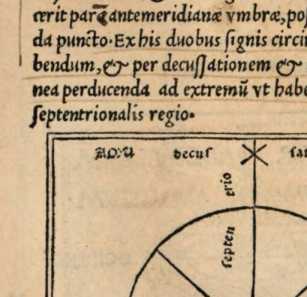 cerit parq̃ antemeridianæ vmbræ, pos
da puncto. Ex his duobus signis circi
bendum, & per decussationem &
nea perducenda ad extremũ vt habe
septentrionalis regio.
decus sat
septen trio